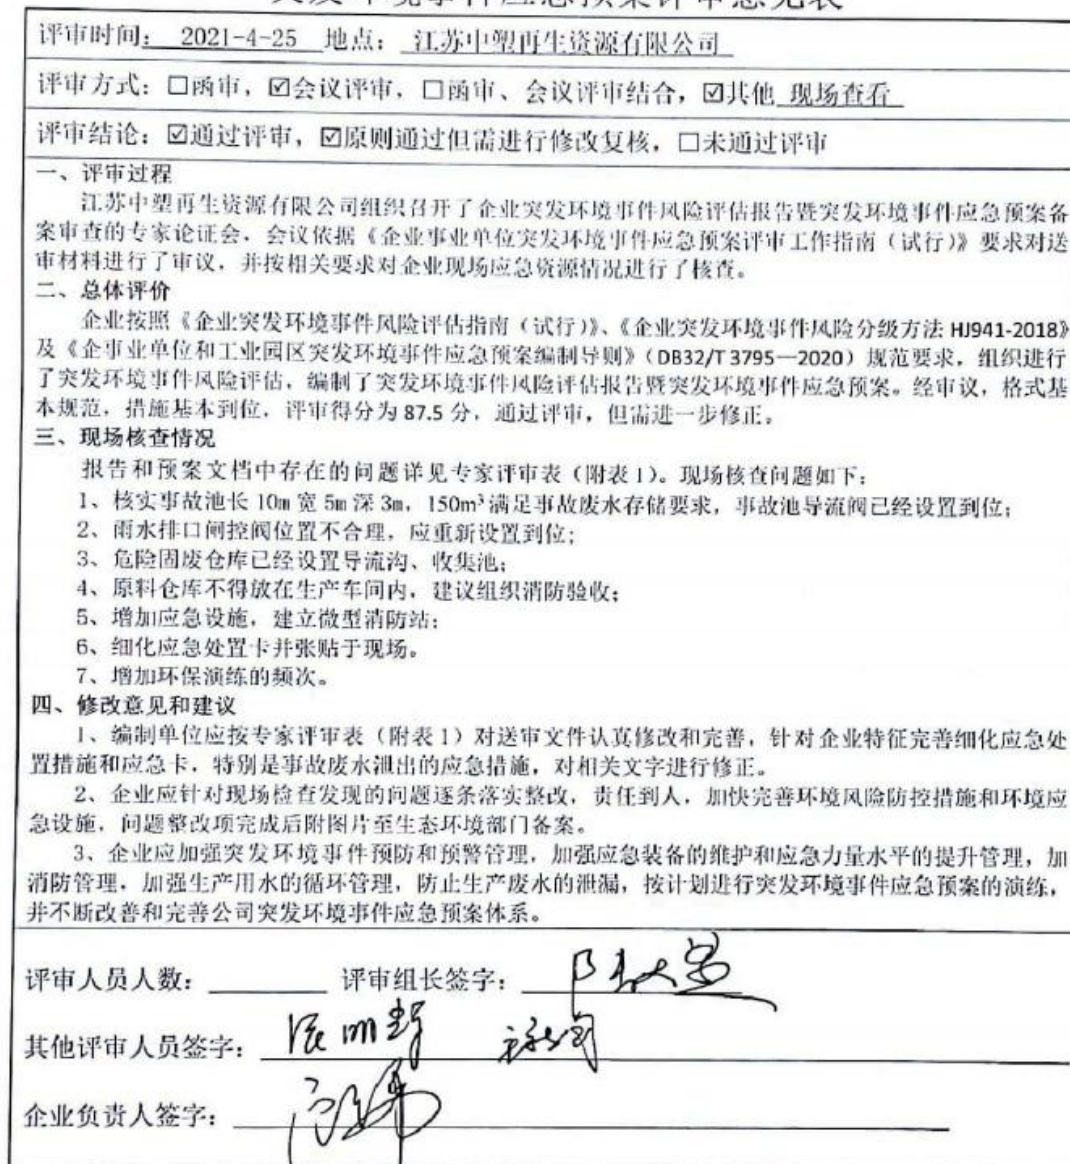 突发环境事件应急预案评审意见表
评审时间: 2021-4-25 地点: 江苏中塑再生资源有限公司
评审方式: ☐函审, ☑会议评审, ☐函审、会议评审结合, ☑其他 现场查看
评审结论: ☑通过评审, ☑原则通过但需进行修改复核, ☐未通过评审
一、评审过程
江苏中塑再生资源有限公司组织召开了企业突发环境事件风险评估报告暨突发环境事件应急预案备
案审查的专家论证会, 会议依据《企业事业单位突发环境事件应急预案评审工作指南（试行）》要求对送
审材料进行了审议, 并按相关要求对企业现场应急资源情况进行了核查。
二、总体评价
企业按照《企业突发环境事件风险评估指南（试行）》、《企业突发环境事件风险分级方法 HJ941-2018》
及《企事业单位和工业园区突发环境事件应急预案编制导则》（DB32/T 3795—2020）规范要求, 组织进行
了突发环境事件风险评估, 编制了突发环境事件风险评估报告暨突发环境事件应急预案。经审议, 格式基
本规范, 措施基本到位, 评审得分为 87.5 分, 通过评审, 但需进一步修正。
三、现场核查情况
报告和预案文档中存在的问题详见专家评审表（附表 1）。现场核查问题如下:
1、核实事故池长 10m 宽 5m 深 3m, 150m³满足事故废水存储要求, 事故池导流阀已经设置到位;
2、雨水排口闸控阀位置不合理, 应重新设置到位;
3、危险固废仓库已经设置导流沟、收集池;
4、原料仓库不得放在生产车间内、建议组织消防验收;
5、增加应急设施, 建立微型消防站;
6、细化应急处置卡并张贴于现场。
7、增加环保演练的频次。
四、修改意见和建议
1、编制单位应按专家评审表（附表 1）对送审文件认真修改和完善, 针对企业特征完善细化应急处
置措施和应急卡, 特别是事故废水泄出的应急措施, 对相关文字进行修正。
2、企业应针对现场检查发现的问题逐条落实整改, 责任到人, 加快完善环境风险防控措施和环境应
急设施, 问题整改项完成后附图片至生态环境部门备案。
3、企业应加强突发环境事件预防和预警管理, 加强应急装备的维护和应急力量水平的提升管理, 加
消防管理, 加强生产用水的循环管理, 防止生产废水的泄漏, 按计划进行突发环境事件应急预案的演练,
并不断改善和完善公司突发环境事件应急预案体系。
评审人员人数: 评审组长签字:
其他评审人员签字:
企业负责人签字: